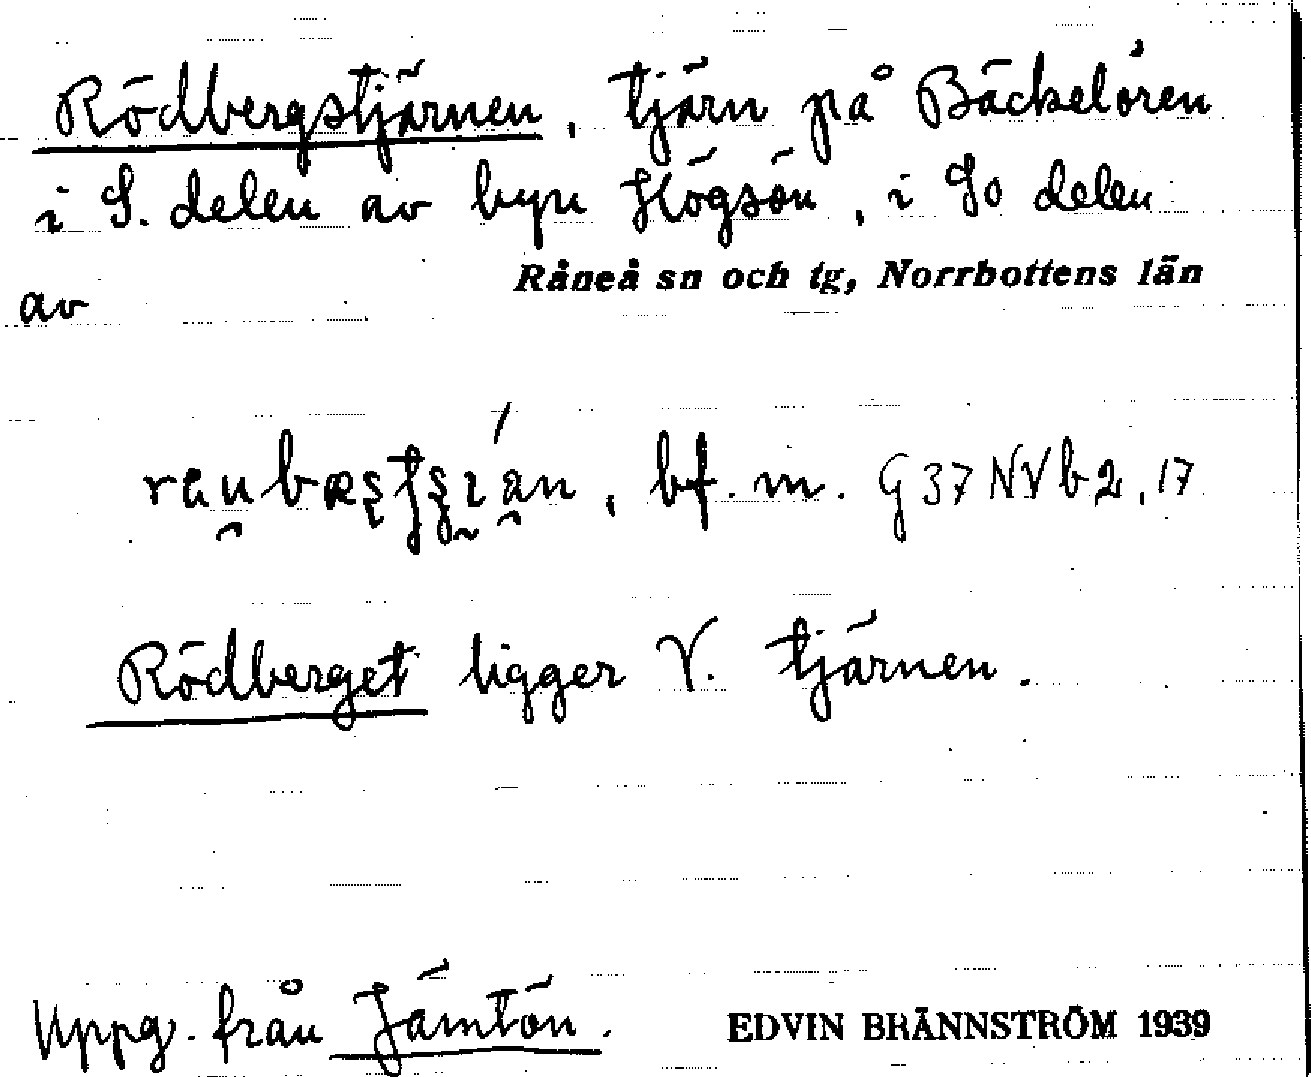 Rödbergstjärnen, tjärn på Bäckelören
i S. delen av byn Högsön, i So delen
av Råneå sn och tg, Norrbottens län
bf. m. G37NVb2, 17
Rödberget ligger V. tjärnen.
Uppg. från Jämtön. EDVIN BRÄNNSTRÖM 1939